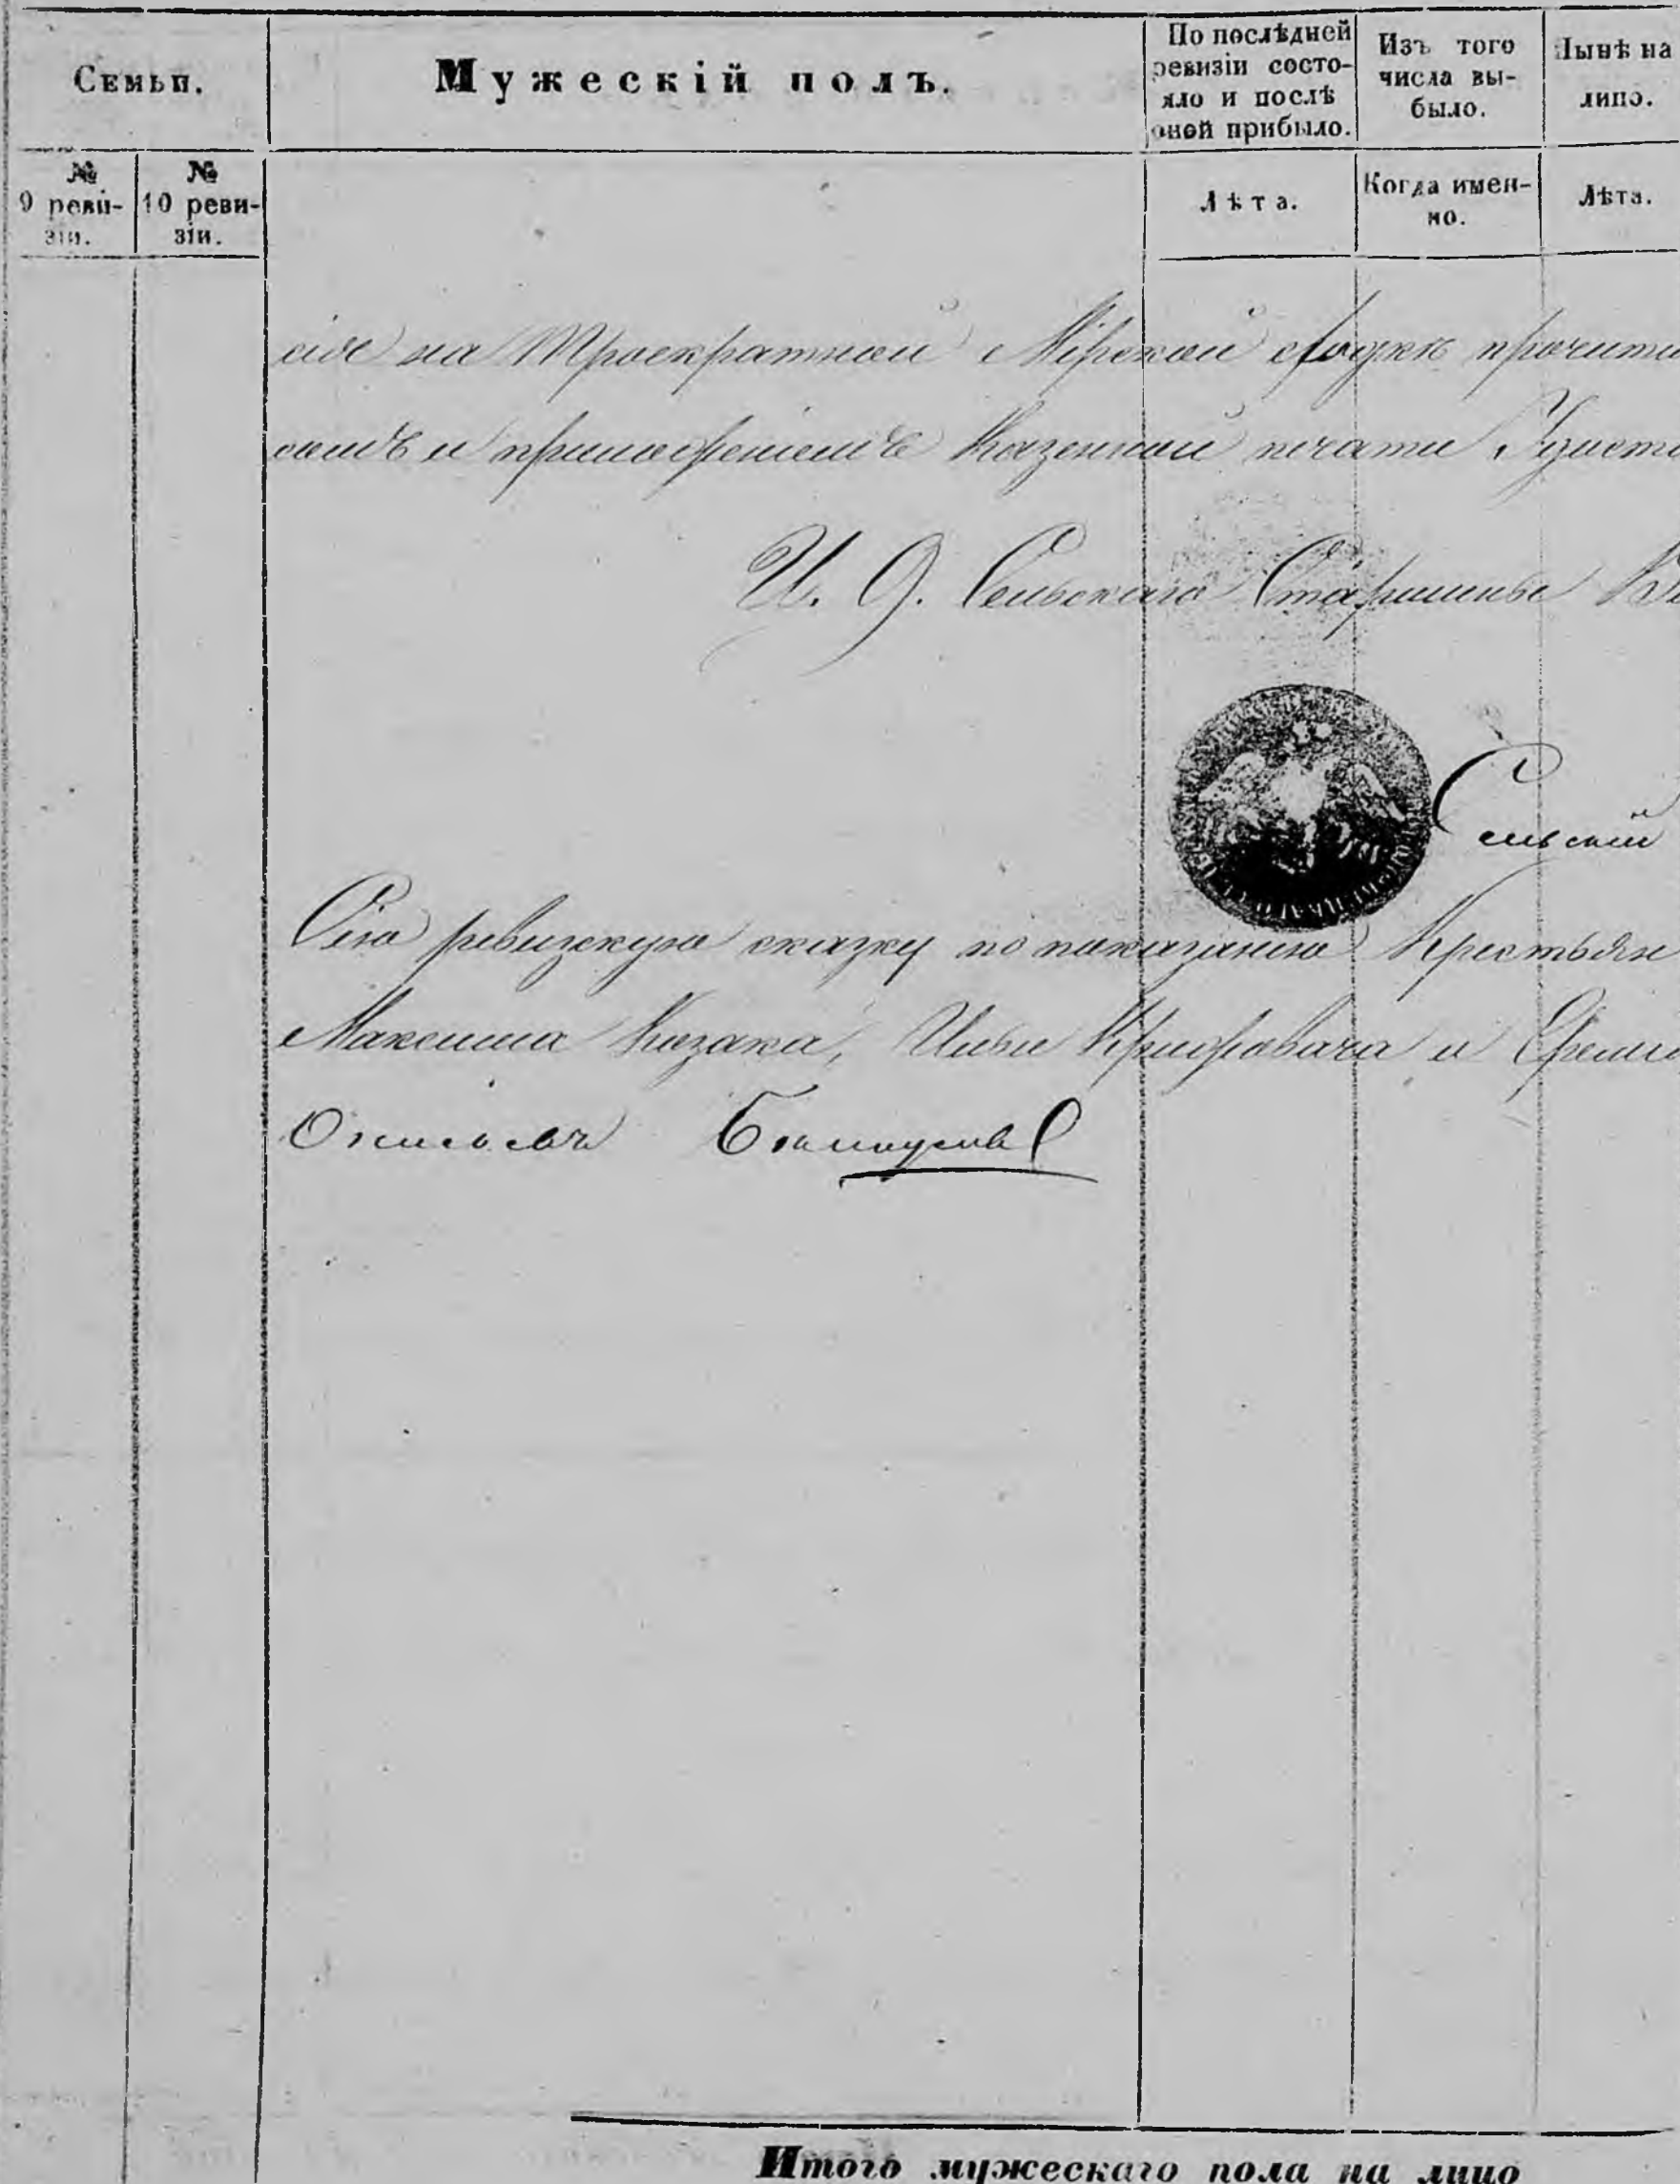 Семьи.
Мужескій полъ.
По послѣдней
ревизіи состо-
яло и послѣ
оной прибыло.
Изъ того
числа вы-
было.
Нынѣ на
лицо.
№
9 реви-
зіи.
№
10 реви-
зіи.
Лѣта.
Когда имен-
но.
Лѣта.
сіе на Троекратной Мірской сходкѣ прочита
и приложеніемъ Казенной печати
И. Д. Сельскаго Старшины
Сельскій
Сію ревизскую сказку по показанію Крестьян
Максима Казака, и
Итого мужескаго пола на лицо